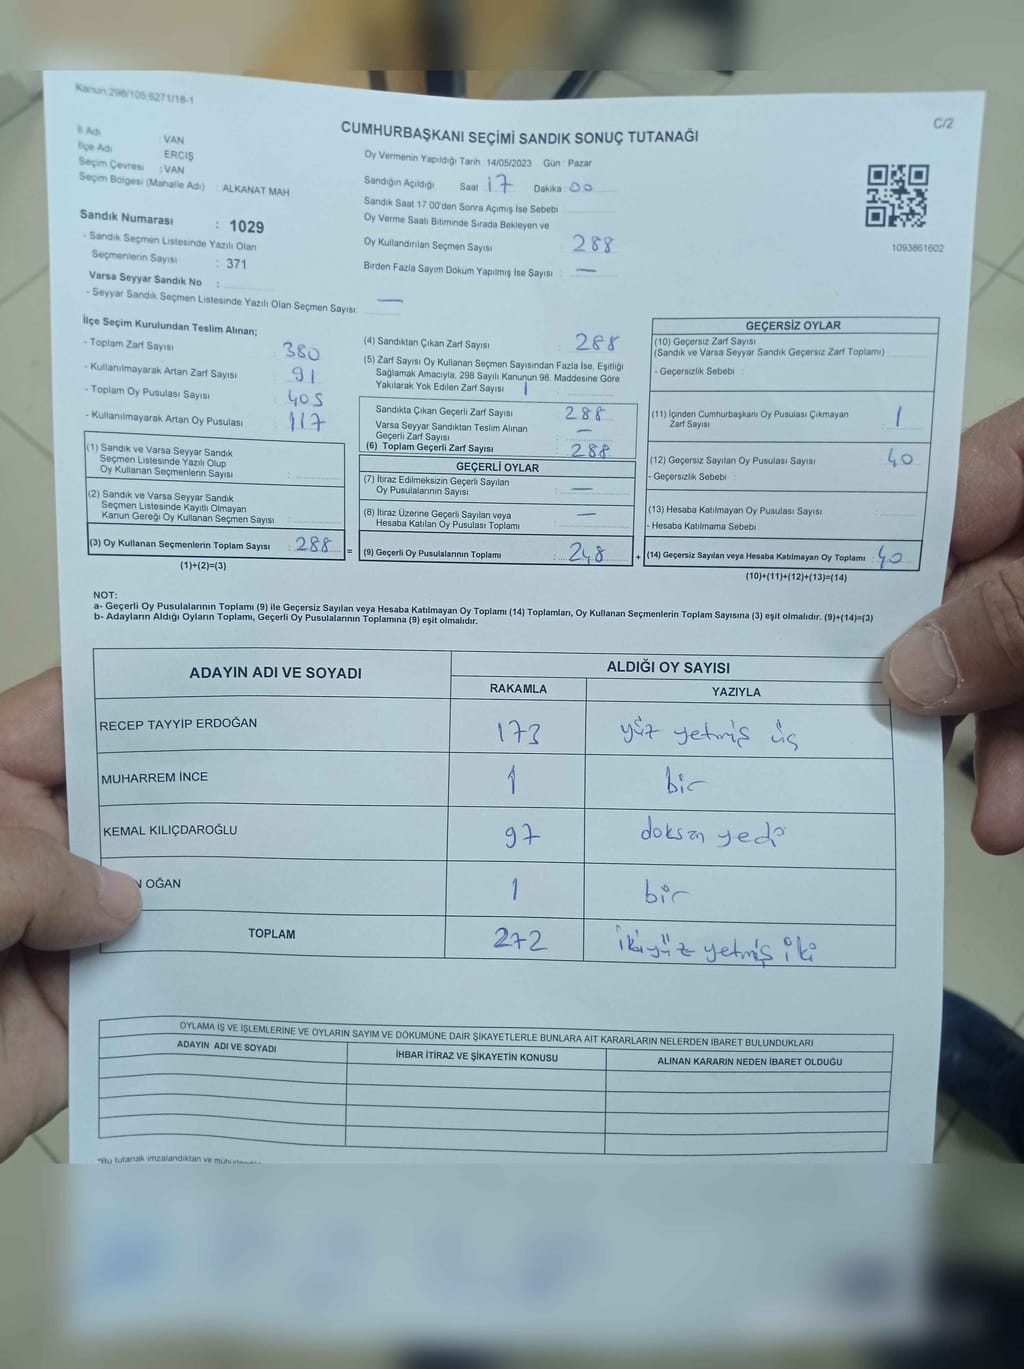 Kanun:298/105,6271/18-1
C/2
CUMHURBAŞKANI SEÇİMİ SANDIK SONUÇ TUTANAĞI
İl Adı : VAN
İlçe Adı : ERCİŞ
Seçim Çevresi : VAN
Seçim Bölgesi (Mahalle Adı) : ALKANAT MAH.
Oy Vermenin Yapıldığı Tarih : 14/05/2023 Gün : Pazar
Sandığın Açıldığı Saat 17 Dakika 00
Sandık Saat 17.00'den Sonra Açımış İse Sebebi
Oy Verme Saati Bitiminde Sırada Bekleyen ve
Oy Kullandırılan Seçmen Sayısı 288
Birden Fazla Sayım Döküm Yapılmış İse Sayısı : —
1093861602
Sandık Numarası : 1029
- Sandık Seçmen Listesinde Yazılı Olan
Seçmenlerin Sayısı : 371
Varsa Seyyar Sandık No :
- Seyyar Sandık Seçmen Listesinde Yazılı Olan Seçmen Sayısı: —
İlçe Seçim Kurulundan Teslim Alınan;
- Toplam Zarf Sayısı : 380
- Kullanılmayarak Artan Zarf Sayısı : 91
- Toplam Oy Pusulası Sayısı : 405
- Kullanılmayarak Artan Oy Pusulası : 117
(1) Sandık ve Varsa Seyyar Sandık
Seçmen Listesinde Yazılı Olup
Oy Kullanan Seçmenlerin Sayısı :
(2) Sandık ve Varsa Seyyar Sandık
Seçmen Listesinde Kayıtlı Olmayan
Kanun Gereği Oy Kullanan Seçmen Sayısı :
(3) Oy Kullanan Seçmenlerin Toplam Sayısı : 288 =
(1)+(2)=(3)
(4) Sandıktan Çıkan Zarf Sayısı : 288
(5) Zarf Sayısı Oy Kullanan Seçmen Sayısından Fazla İse, Eşitliği
Sağlamak Amacıyla, 298 Sayılı Kanunun 98. Maddesine Göre
Yakılarak Yok Edilen Zarf Sayısı
Sandıkta Çıkan Geçerli Zarf Sayısı : 288
Varsa Seyyar Sandıktan Teslim Alınan
Geçerli Zarf Sayısı : —
(6) Toplam Geçerli Zarf Sayısı : 288
GEÇERLİ OYLAR
(7) İtiraz Edilmeksizin Geçerli Sayılan
Oy Pusulalarının Sayısı : —
(8) İtiraz Üzerine Geçerli Sayılan veya
Hesaba Katılan Oy Pusulası Toplamı : —
(9) Geçerli Oy Pusulalarının Toplamı : 248 +
GEÇERSİZ OYLAR
(10) Geçersiz Zarf Sayısı
(Sandık ve Varsa Seyyar Sandık Geçersiz Zarf Toplamı)
- Geçersizlik Sebebi :
(11) İçinden Cumhurbaşkanı Oy Pusulası Çıkmayan
Zarf Sayısı : 1
(12) Geçersiz Sayılan Oy Pusulası Sayısı : 40
- Geçersizlik Sebebi :
(13) Hesaba Katılmayan Oy Pusulası Sayısı
- Hesaba Katılmama Sebebi :
(14) Geçersiz Sayılan veya Hesaba Katılmayan Oy Toplamı : 40
(10)+(11)+(12)+(13)=(14)
NOT:
a- Geçerli Oy Pusulalarının Toplamı (9) ile Geçersiz Sayılan veya Hesaba Katılmayan Oy Toplamı (14) Toplamları, Oy Kullanan Seçmenlerin Toplam Sayısına (3) eşit olmalıdır. (9)+(14)=(3)
b- Adayların Aldığı Oyların Toplamı, Geçerli Oy Pusulalarının Toplamına (9) eşit olmalıdır.
ADAYIN ADI VE SOYADI
ALDIĞI OY SAYISI
RAKAMLA YAZIYLA
RECEP TAYYİP ERDOĞAN 173 yüz yetmiş üç
MUHARREM İNCE 1 bir
KEMAL KILIÇDAROĞLU 97 doksan yedi
OĞAN 1 bir
TOPLAM 272 ikiyüz yetmiş iki
OYLAMA İŞ VE İŞLEMLERİNE VE OYLARIN SAYIM VE DÖKÜMÜNE DAİR ŞİKAYETLERLE BUNLARA AİT KARARLARIN NELERDEN İBARET BULUNDUKLARI
ADAYIN ADI VE SOYADI İHBAR İTİRAZ VE ŞİKAYETİN KONUSU ALINAN KARARIN NEDEN İBARET OLDUĞU
*Bu tutanak imzalandıktan ve